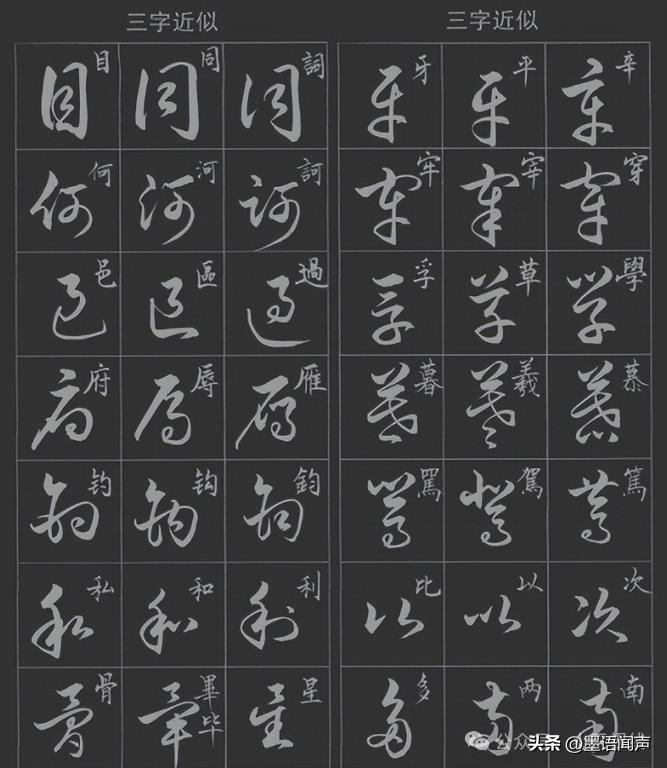 三字近似
目 同 詞
何 河 訶
邑 區 過
府 辱 雁
钧 钩 鈞
私 和 利
骨 畢毕 星
三字近似
牙 平 辛
牢 宰 穿
孚 草 學
暮 羲 慕
罵 駕 篤
比 以 次
多 两 南
头条 @墨语闻声